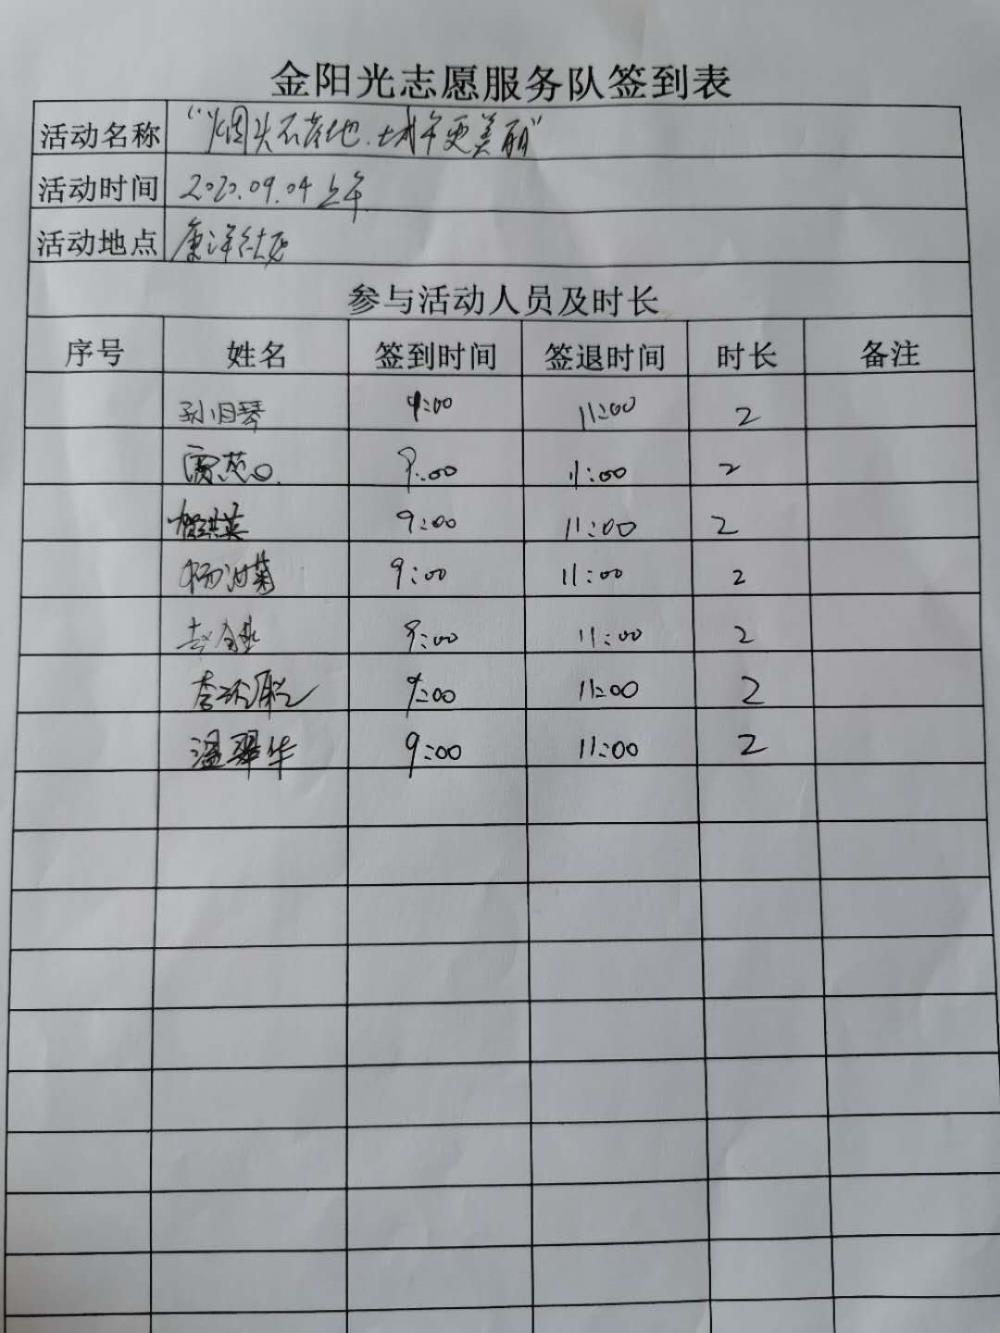 金阳光志愿服务队签到表
活动名称 "烟头不落地.城市更美丽"
活动时间 2020.09.04上午
活动地点 康洋社区
参与活动人员及时长
序号 姓名 签到时间 签退时间 时长 备注
孙月琴 9:00 11:00 2
9:00 11:00 2
9:00 11:00 2
杨油菊 9:00 11:00 2
9:00 11:00 2
9:00 11:00 2
温翠华 9:00 11:00 2